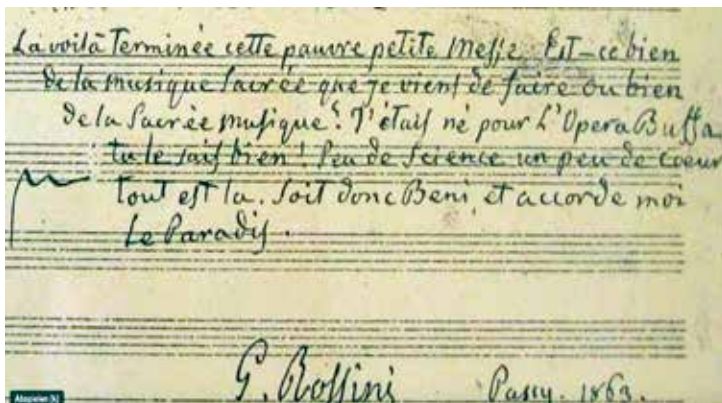 La voilà terminée cette pauvre petite Messe. Est-ce bien
de la musique Sacrée que je viens de faire ou bien
de la Sacrée musique? J'étais né pour L'Opera Buffa,
tu le sais bien! Peu de Science un peu de coeur
tout est la. Soit donc Beni, et accorde moi
Le Paradis.
G. Rossini Passy. 1863.